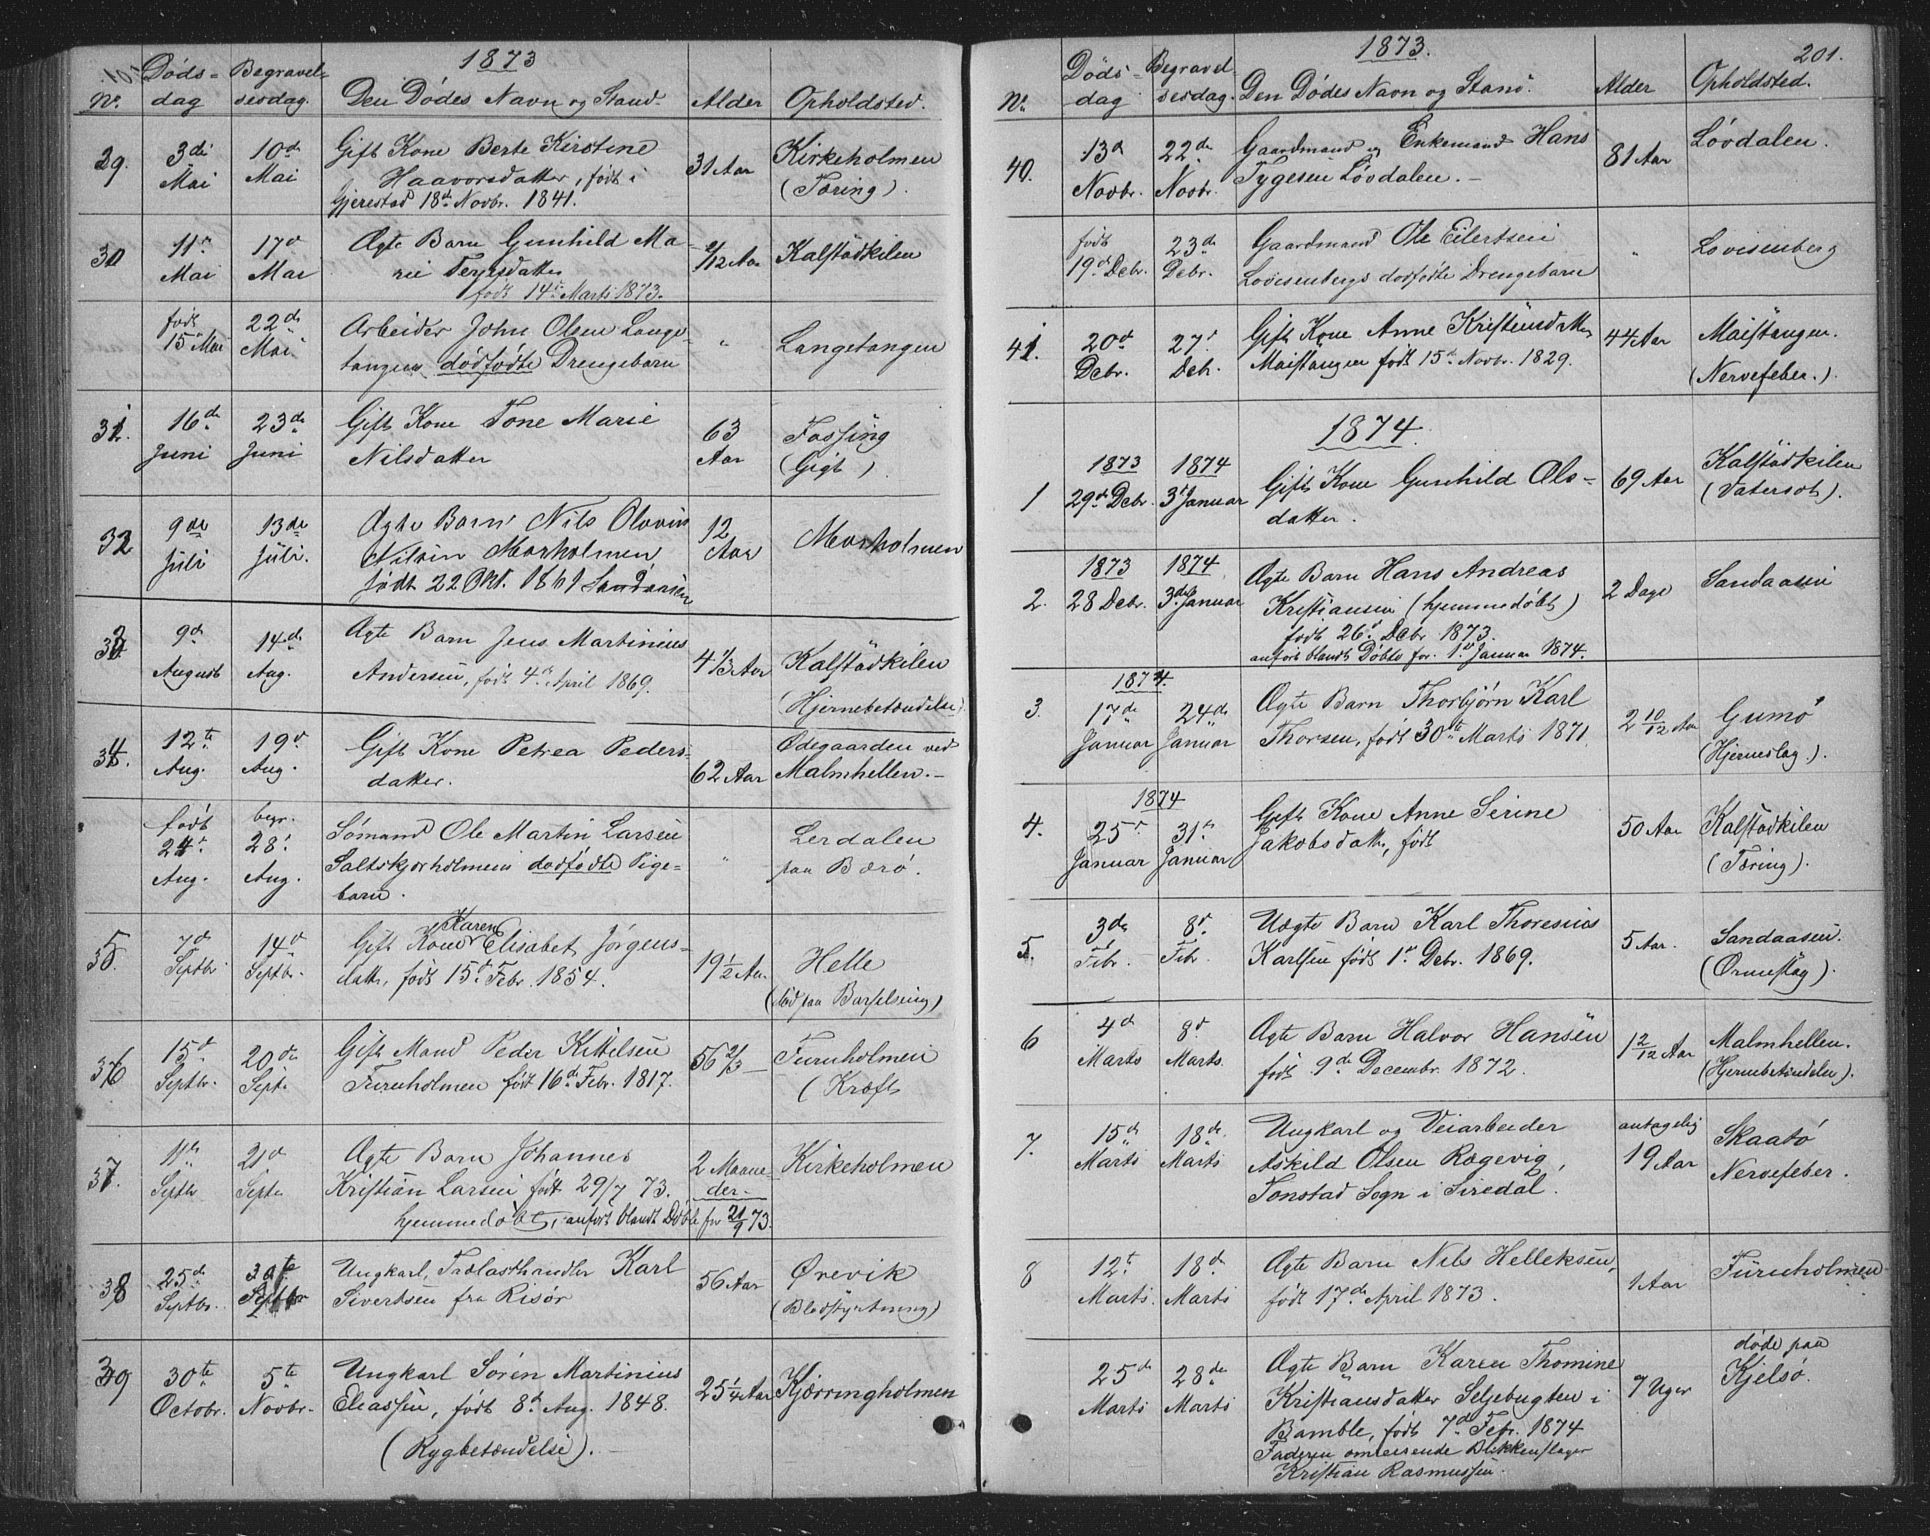 1873
No. Døds- dag Begravel- sesdag. Den Dødes Navn og Stand. Alder Opholdsted.
29. 3die Mai 10de Mai Gift Kone Berte Kirstine 31 Aar Kirkeholmen
Haavorsdatter, født i (Tæring).
Gjerestad 18de Novbr. 1841.
30 11te Mai 17de Mai Ægte Barn Gunhild Ma- 2/12 Aar Kalstadkilen
rie Terjesdatter
født 14de Marts 1873.
født 15 Mai 22de Mai Arbeider John Olsen Lange- " Langetangen
tangens dødfødte Drengebarn
31. 16de Juni 23de Juni Gift Kone Tone Marie 63 Aar Fossing
Nilsdatter (Gigt).
32 9de Juli 13de Juli. Ægte Barn Nils Olavin 12 Aar Morholmen
Nilsen Morholmen
født 22 Okt. 1861 Sandaasen
33 9de August 14de Aug. Ægte Barn Jens Martinius 4 1/3 Aar Kalstadkilen
Andersen, født 4de April 1869. (Hjernebetændelse).
34. 12te Aug. 19de Aug. Gift Kone Petrea Peders- 62 Aar Ødegaarden ved
datter. Malmhellen.-
født 24de Aug. begr. 28de Aug. Sømand Ole Martin Larsen " Lerdalen
Saltskjærholmens dødfødte Pige- paa Bærø.
barn.
35. 7de Septbr. 14de Septbr. Gift Kone Karen Elisabet Jørgens- 19 1/2 Aar Helle
datter, født 15de Febr. 1854. (død paa Barselseng)
36 15de Septbr. 20de Septr. Gift Mand Peder Kittelsen 56 2/3 - Furuholmen
Furuholmen født 16de Febr. 1817. (Kræft
37. 11te Septbr 21de Septr Ægte Barn Johannes 2 Maane- Kirkeholmen
Kristian Larsen født 29/7 73. der.
hjemmedøbt, anført blandt Døbte for 21/9 73.
38 25de Septbr. 30te Septbr Ungkarl, Trælasthandler Karl 56 Aar Ørevik
Sivertsen fra Risør (Blodstyrtning)
39 30te Octobr. 5te Novbr. Ungkarl Søren Martinius 25 1/4 Aar Kjørringholmen
Eliassen, født 8de Aug. 1848.
(Rygbetændelse).-
1873. 201.
No. Døds- dag Begravel- sesdag. Den Dødes Navn og Stand. Alder Opholdsted.
40. 13de Novbr. 22de Novbr. Gaardmand og Enkemand Hans 81 Aar Løvdalen.
Tygesen Løvdalen.-
født 19de Debr. 23de Debr. Gaardmand Ole Eilertsen " Lovisenberg
Lovisenbergs dødfødte Drengebarn
41. 20de Debr. 27de Debr. Gift Kone Anne Kristensdatter 44 Aar Maistangen.
Maistangen født 15de Novbr. 1829. (Nervefeber.).
1874.
1 1873 29de Debr. 1874 3de Januar Gift Kone Gunhild Ols- 69 Aar Kalstadkilen
datter. (Vatersot).
2. 1873 28 Debr. 1874 3de Januar Ægte Barn Hans Andreas 2 Dage Sandaasen
Kristiansen (hjemmedøbt)
født 26de Debr 1873.
anført blandt Døbte for 1ste Januar 1874.
3. 1874. 17de Januar 24de Januar Ægte Barn Thorbjørn Karl 2 10/12 Aar Gumø
Thorsen, født 30te Marts 1871. (Hjerneslag.).
4. 1874 25de Januar 31te Januar Gift Kone Anne Serine 50 Aar Kalstadkilen
Jakobsdatter, født (Tæring).
5. 3de Febr. 8de Febr Uægte Barn Karl Thoresius 5 Aar. Sandaasen.
Karlsen født 1ste Debr. 1869. (Ormeslag).
6 4de Marts 8de Marts. Ægte Barn Halvor Hansen 1 2/12 Aar Malmhellen.
født 9de Decembr. 1872. (Hjernebetændelse).
7. 15de Marts 18de Marts Ungkarl og Veiarbeider antagelig Skaatø
Askild Olsen Rægevig, 19 Aar Nervefeber.
Tonstad Sogn i Siredal.
8 12te Marts. 18de Marts Ægte Barn Nils Helleksen, 1 Aar Furuholmen
født 17de April 1873.
25de Marts 28de Marts Ægte Barn Karen Thomine 7 Uger døde paa
Kristiansdatter Seljebugten i Kjelsø.
Bamble, født 7de Febr. 1874
Faderen omreisende Blikkenslager
Kristian Rasmussen.